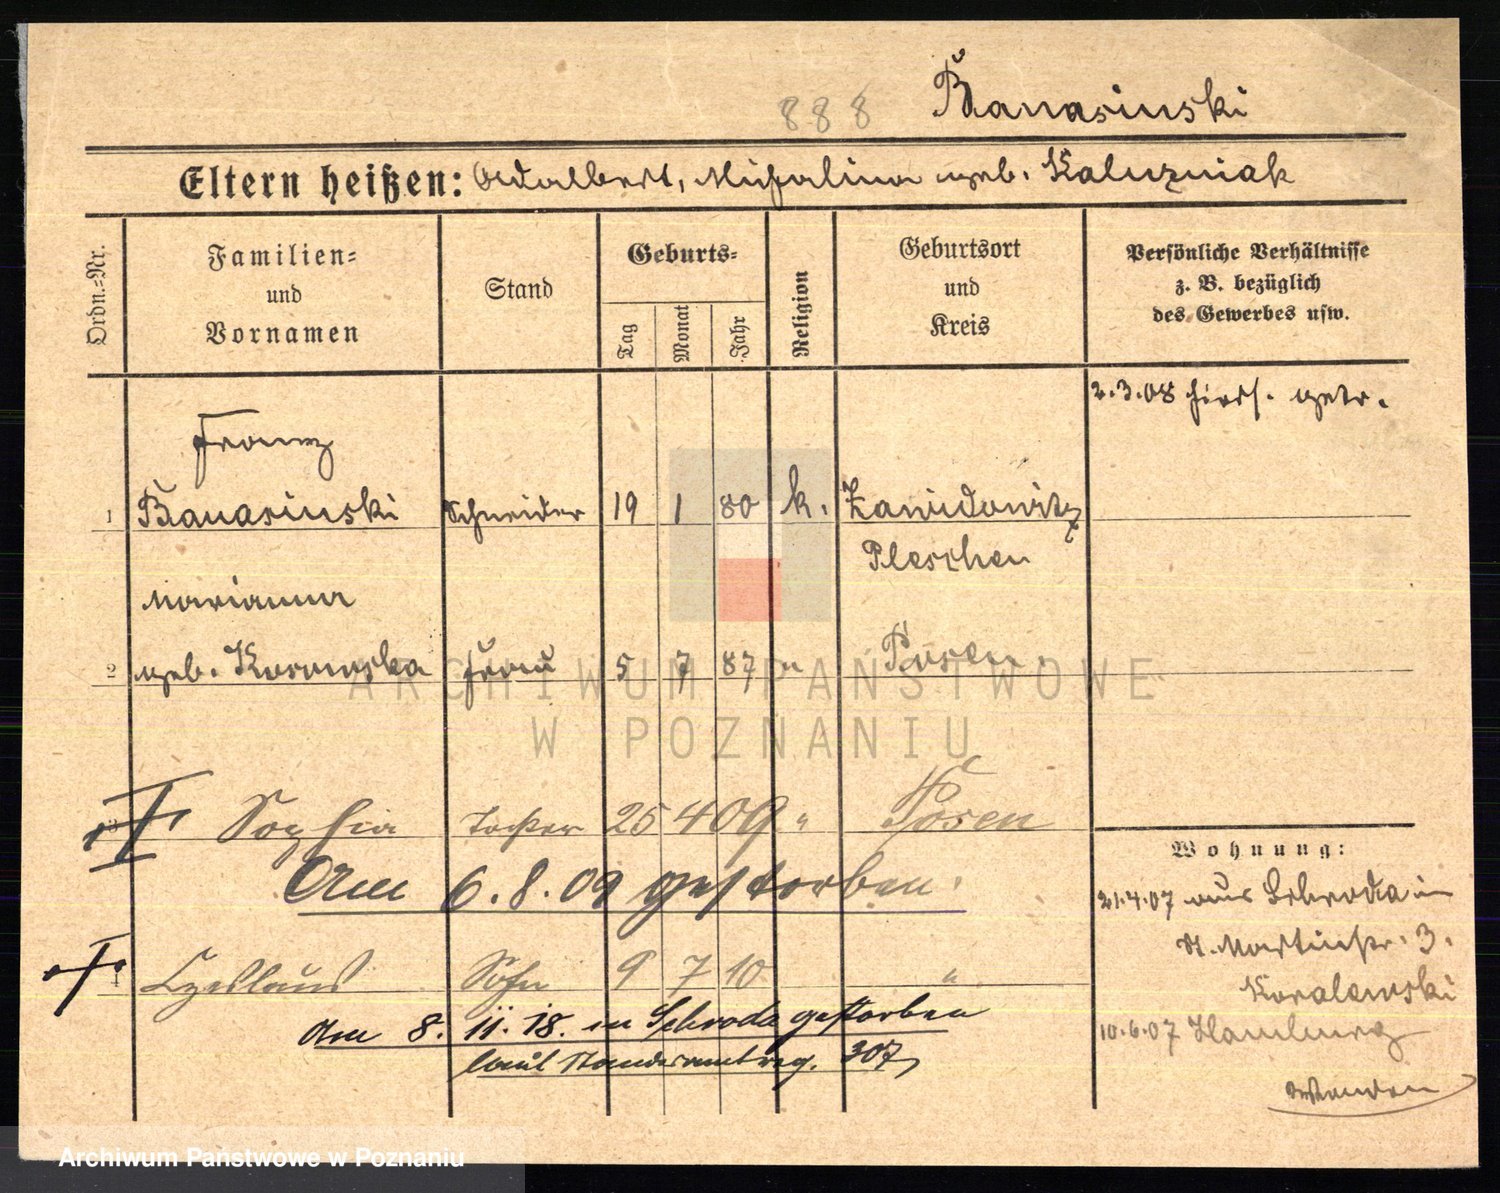 888 Banasinski
Eltern heißen: Adalbert, Michalina geb. Kaluzniak
Ordn.-Nr.
Familien-
und
Vornamen
Stand
Geburts-
Tag
Monat
Jahr
Religion
Geburtsort
und
Kreis
Persönliche Verhältnisse
z. B. bezüglich
des Gewerbes usw.
2.3.08 hiers. getr.
Franz
1 Banasinski Schneider 19 1 80 k. Zawidowitz
Pleschen
Marianna
2 geb. Kosminska Frau 5 7 87 " Posen.
3 Sophia Tochter 25 4 09 " Posen
Am 6.8.09 gestorben.
4 Czeslaus Sohn 9 7 10 "
Am 8. 11. 18. in Schroda gestorben
laut Standesamtreg. 307
Wohnung:
21.4.07 aus Schroda in
St. Martinstr. 3.
Kowalewski
10.6.07 Hamburg
ARCHIWUM PAŃSTWOWE
W POZNANIU
Archiwum Państwowe w Poznaniu